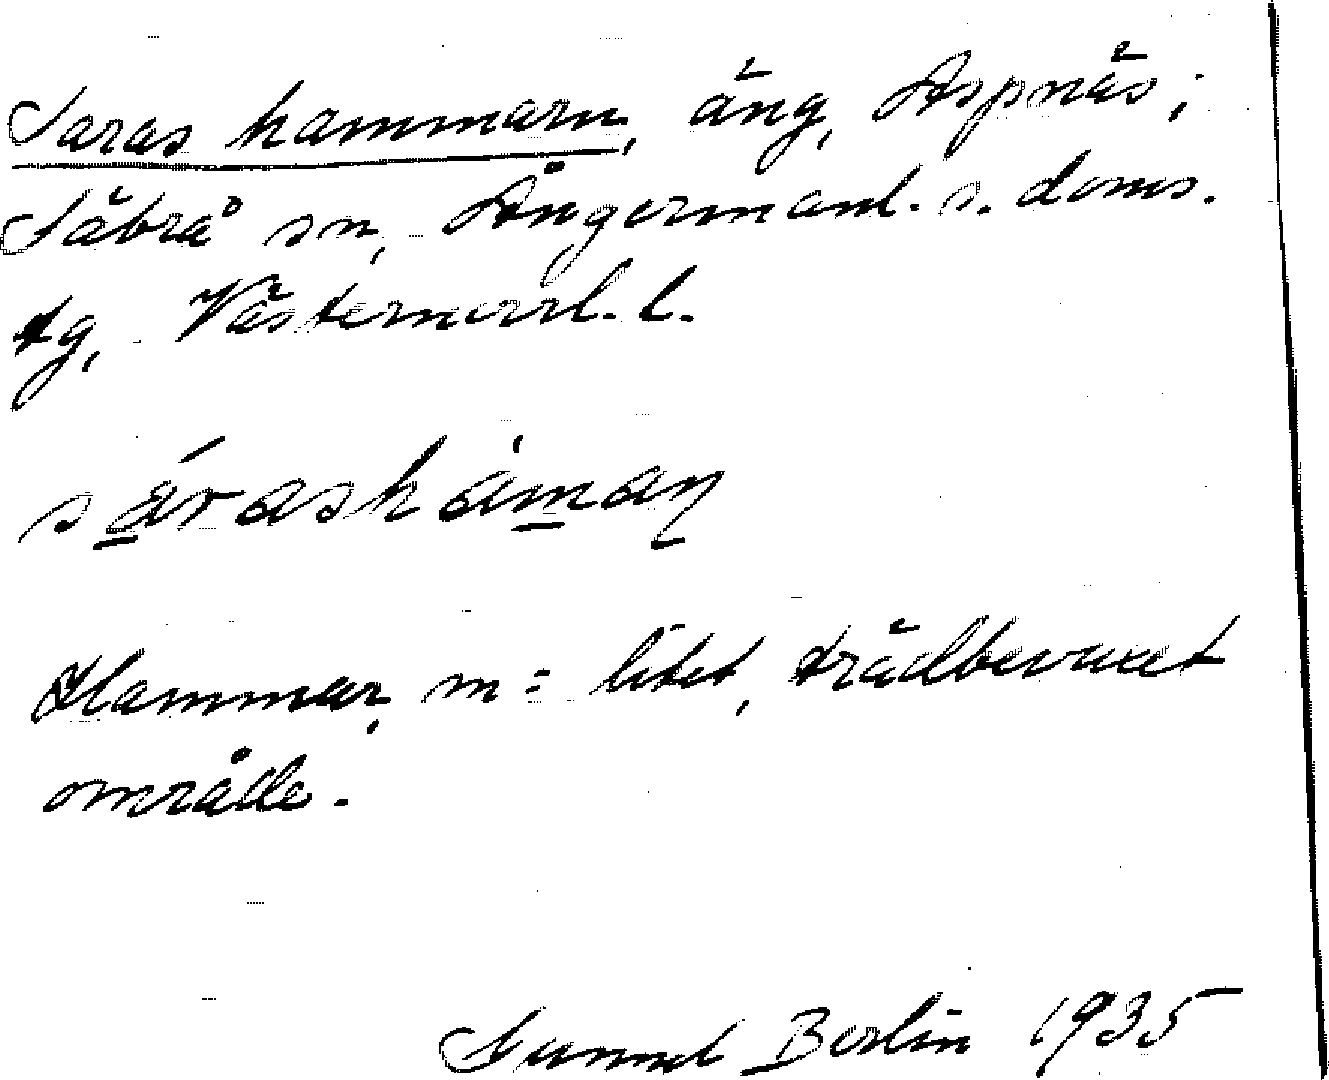 Saras hammarn, äng, Aspnäs;
Säbrå sn, Ångermanl. s. doms.
tg, Västernorrl. l.
sárashámaṇ
Hammar, m = litet, trädbevuxet
område.
Berlin 1935